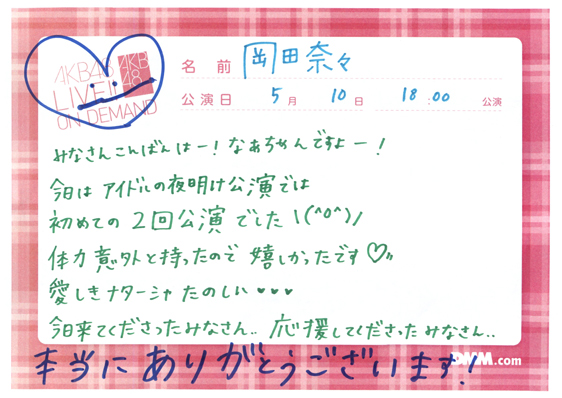 AKB48
LIVE!!
ON DEMAND
AKB
48
名前 岡田奈々
公演日 5月 10日 18:00 公演
みなさんこんばんはー!なぁちゃんですよー!
今日は アイドルの夜明け公演では
初めての 2回公演 でした \(^o^)/
体力 意外と持ったので 嬉しかったです♡〃
愛しきナターシャ たのしい♥♥♥
今日来てくださったみなさん.. 応援してくださったみなさん..
本当に ありがとうございます!
DMM.com